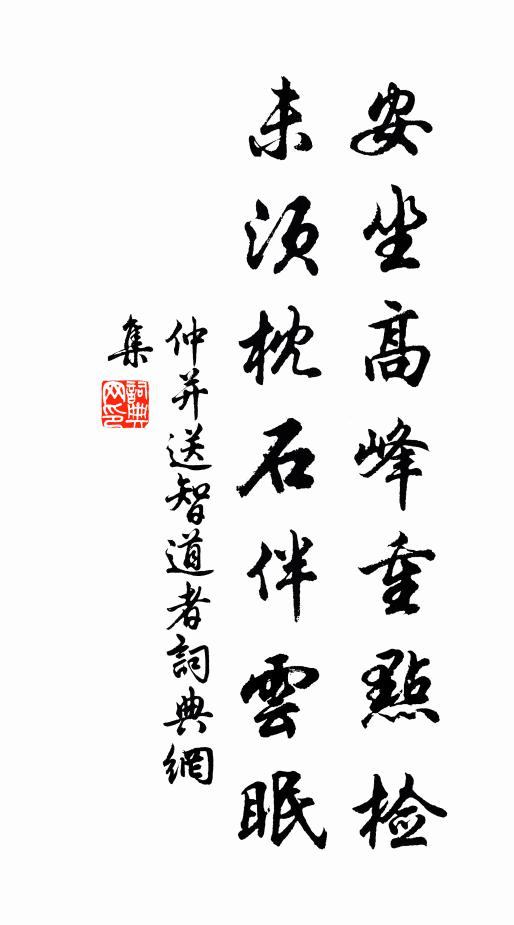 安坐高峰重點检
未須枕石伴雲眠
仲并送智道者詞典網
集
詞典網印